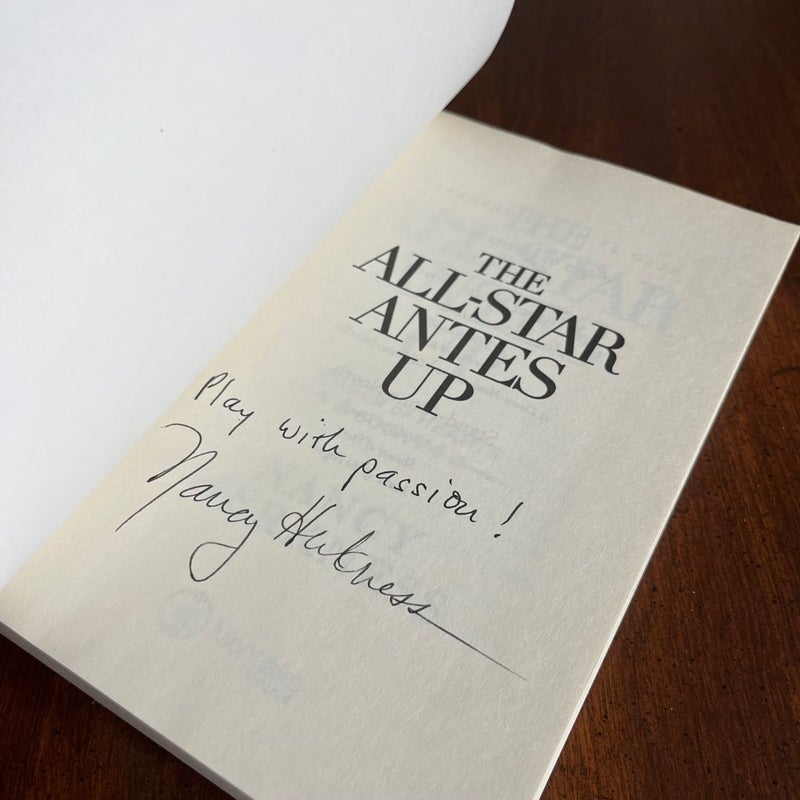 THE
ALL-STAR
ANTES
UP
Play with passion!
Nancy Herkness